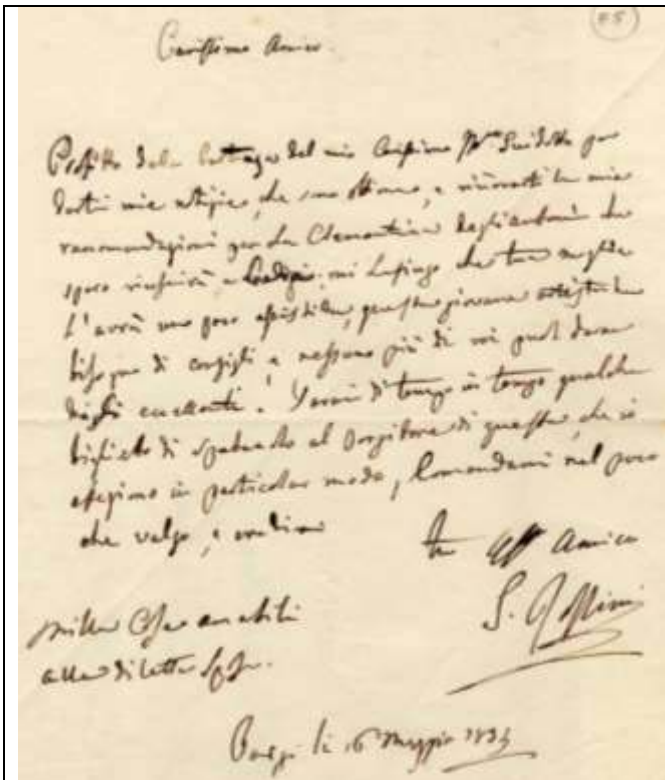 55
Carissimo Amico.
Profitto della partenza del mio Carissimo Guidotti per
darti mie notizie, che sono ottime, e rinnovarti le mie
raccomandazioni per la Clementina Degliantoni che
spero riuscirà a ; mi lusingo che tua moglie
l'avrà un poco assistita, questa giovane artista ha
bisogno di consigli e nessuno più di voi puol darne
degli eccellenti. Darai di tempo in tempo qualche
biglietto di spettacolo al porgitore di questa, che io
stimo in particolar modo, Comandami nel poco
che valgo, e credimi
tuo Aff Amico
G. Rossini
mille Cose amabili
alla diletta Sposa.
Parigi li 16 Maggio 1834